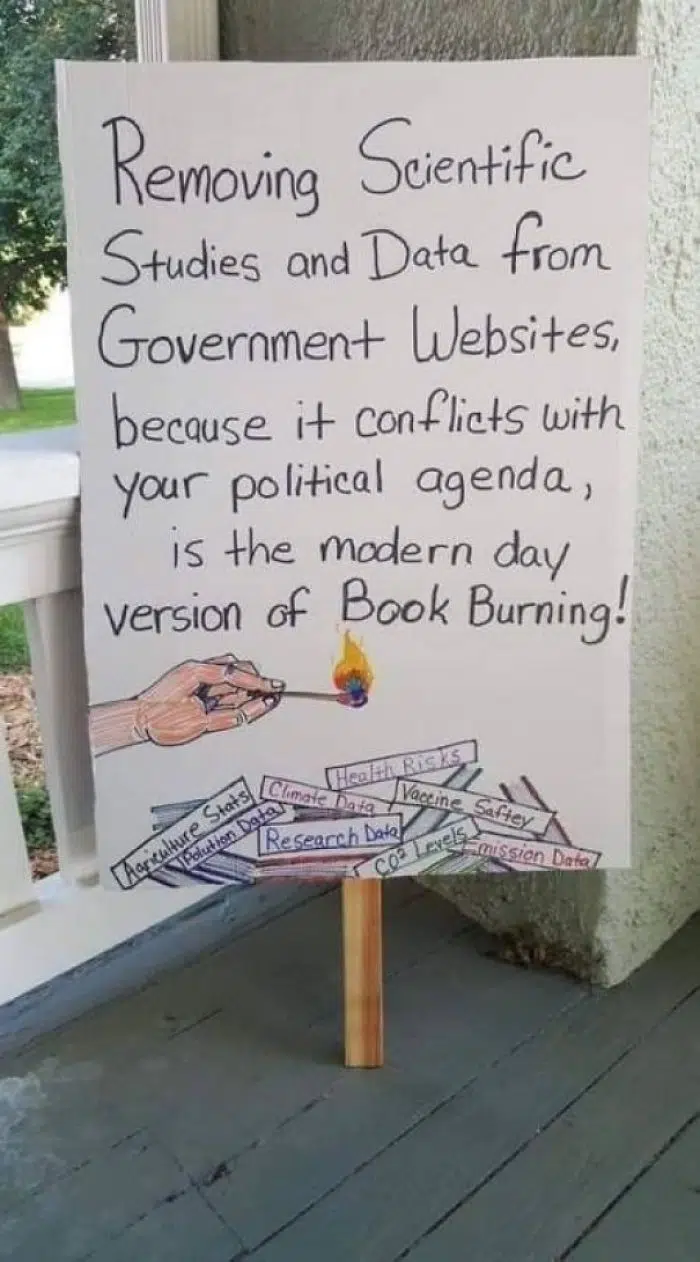 Removing Scientific
Studies and Data from
Government Websites,
because it conflicts with
your political agenda,
is the modern day
version of Book Burning!
Health Risks
Agriculture Stats
Climate Data
Vaccine Saftey
Polution Data
Research Data
CO² Levels
Emission Data